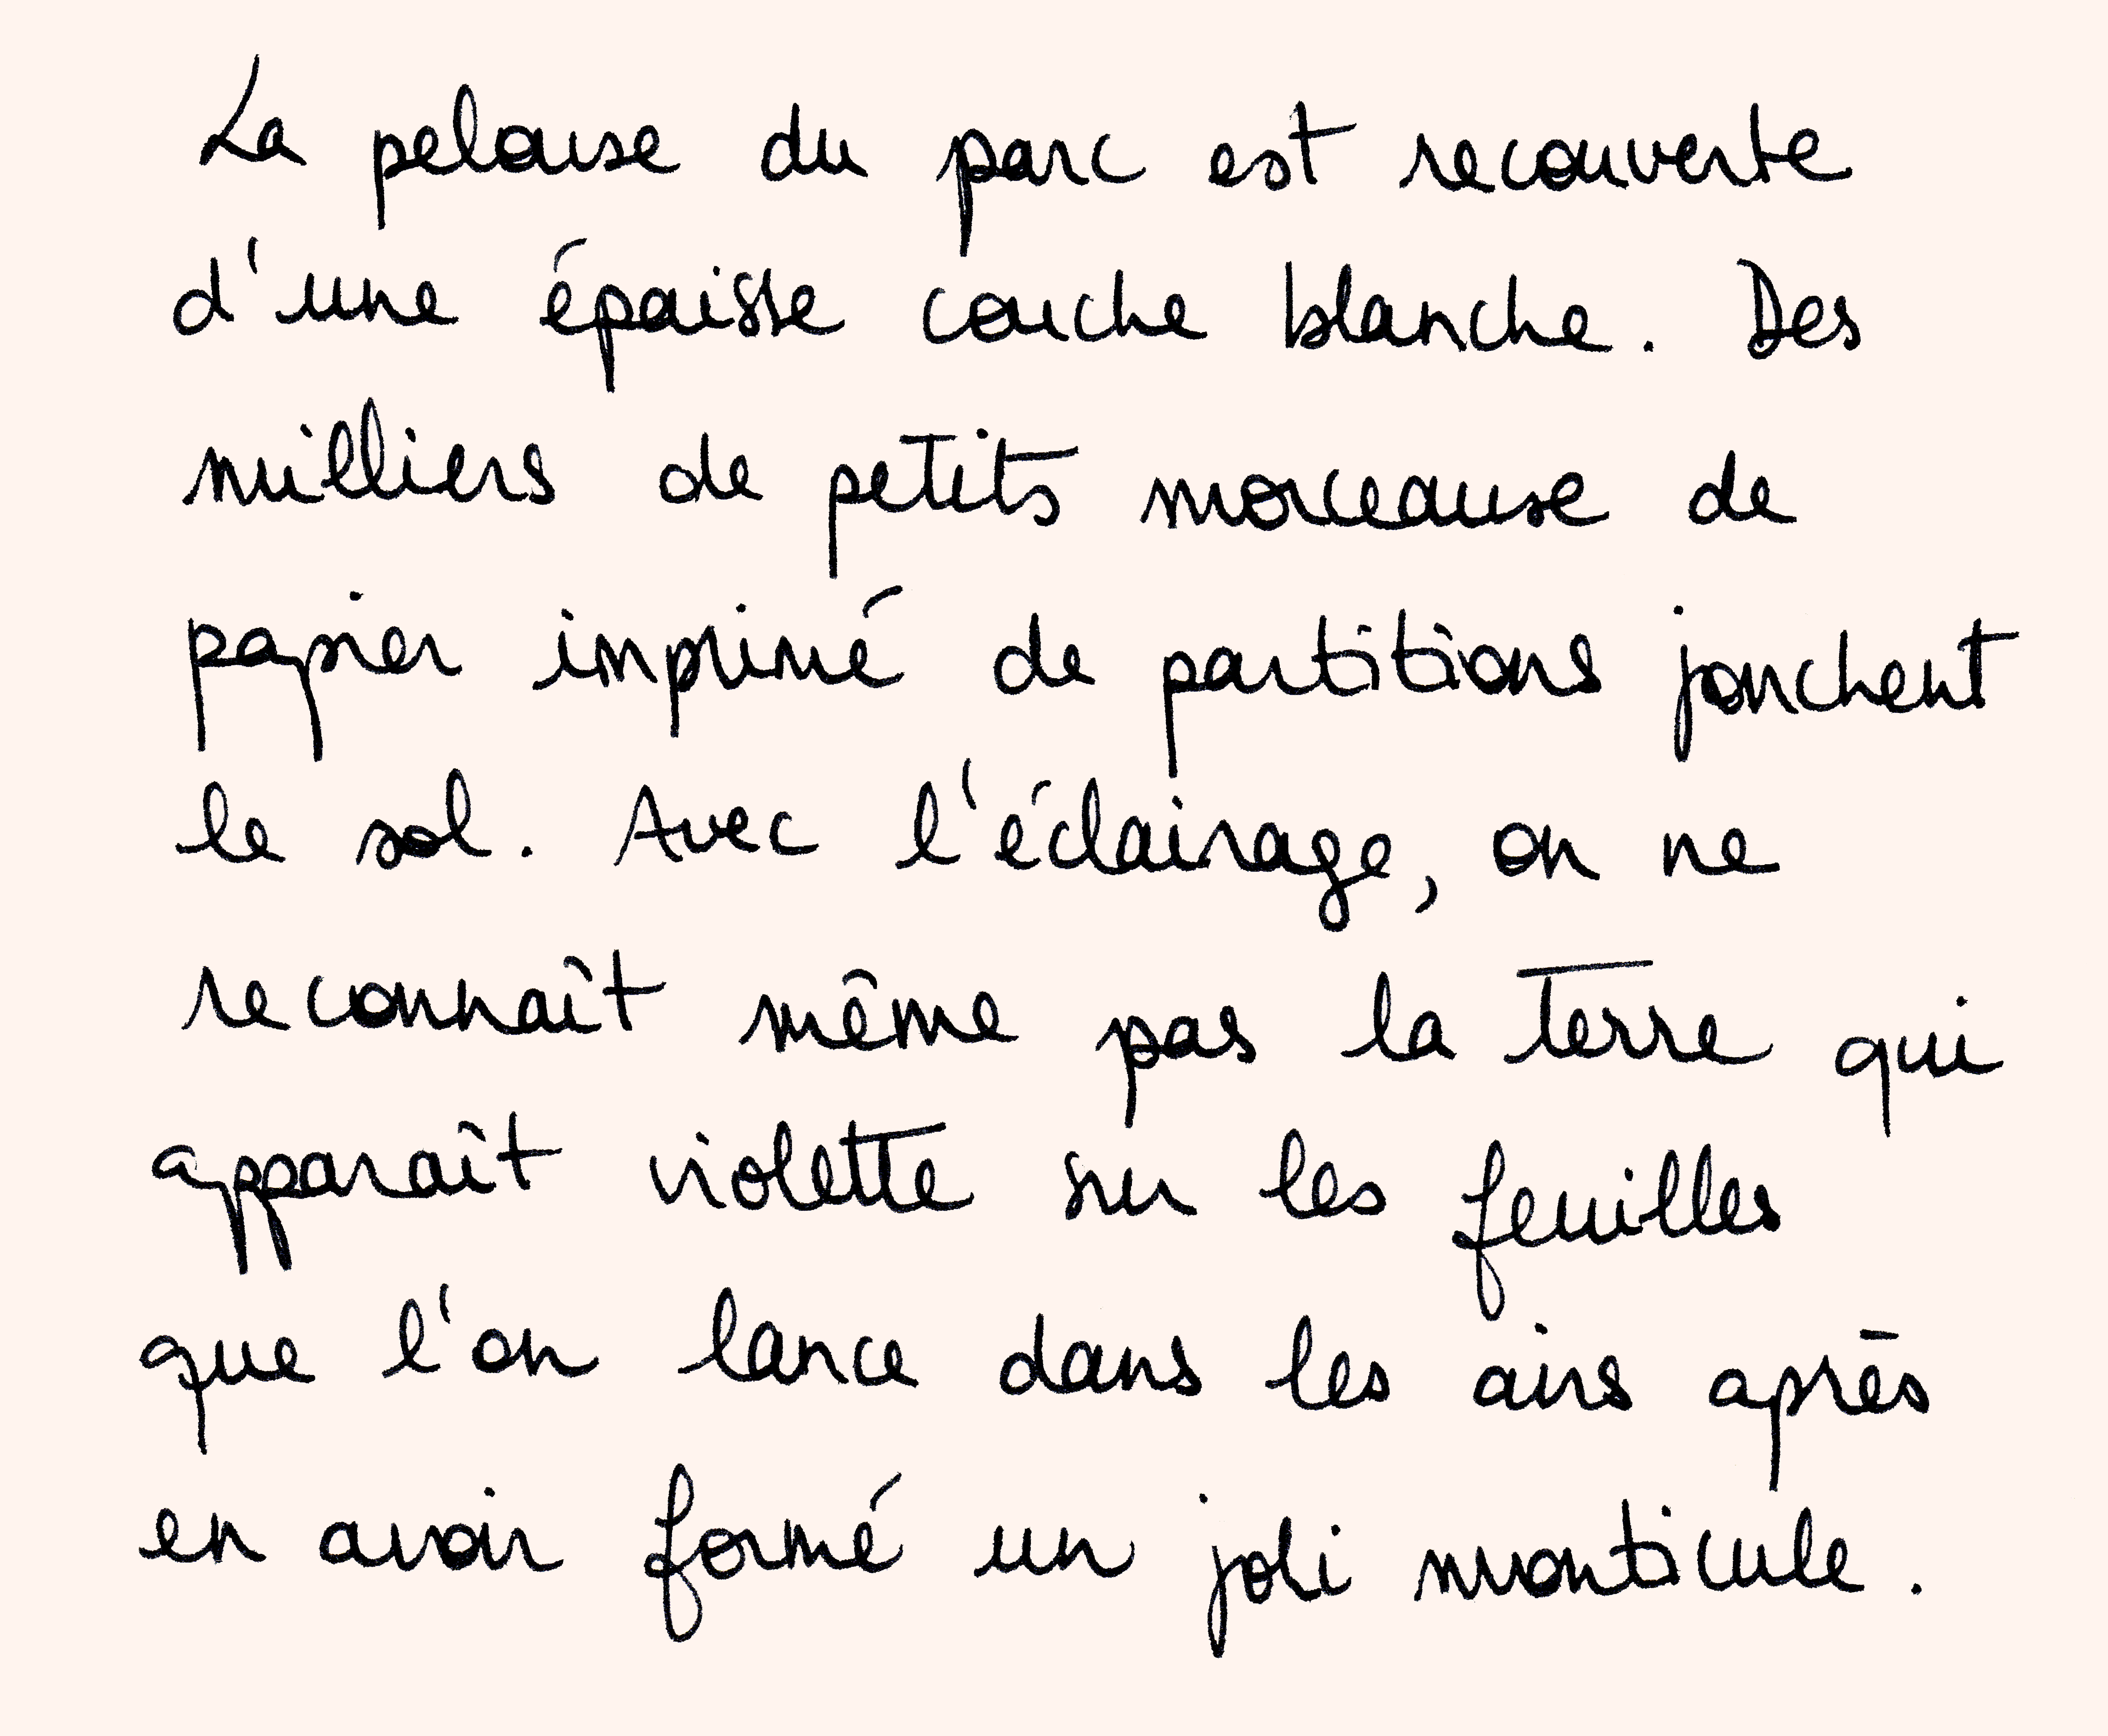 La pelouse du parc est recouverte
d'une épaisse couche blanche. Des
milliers de petits morceaux de
papier imprimé de partitions jonchent
le sol. Avec l'éclairage, on ne
reconnaît même pas la terre qui
apparaît violette sur les feuilles
que l'on lance dans les airs après
en avoir formé un joli monticule.